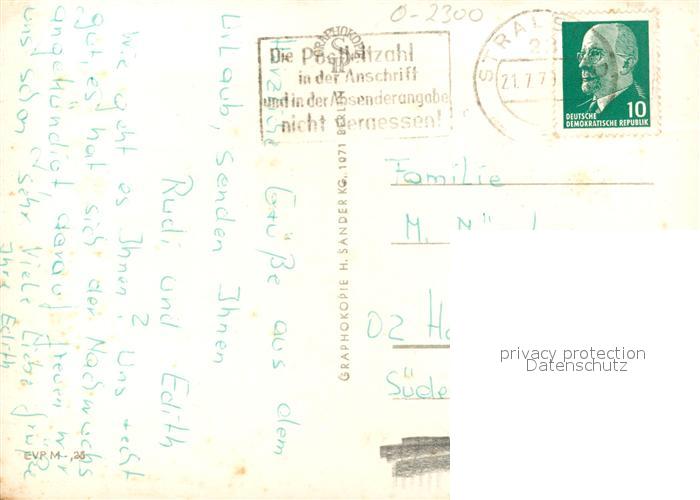 O-2300
GRAPHOKOPIE
Die Postleitzahl
in der Anschrift
und in der Absenderangabe
nicht vergessen!
STRALS
21.7.7
10
DEUTSCHE
DEMOKRATISCHE REPUBLIK
Herzliche Grüße aus dem
Urlaub, senden Ihnen
Rudi und Edith
Wie geht es Ihnen? Uns geht
gut es hat sich der Nachwuchs
angekündigt darauf freuen wir
uns schon sehr Viele liebe Grüße
Ihre Edith
GRAPHOKOPIE H. SANDER KG., 1071 BERLIN
Familie
M.
DZ Ha
Süde
EVP M -,25
privacy protection
Datenschutz